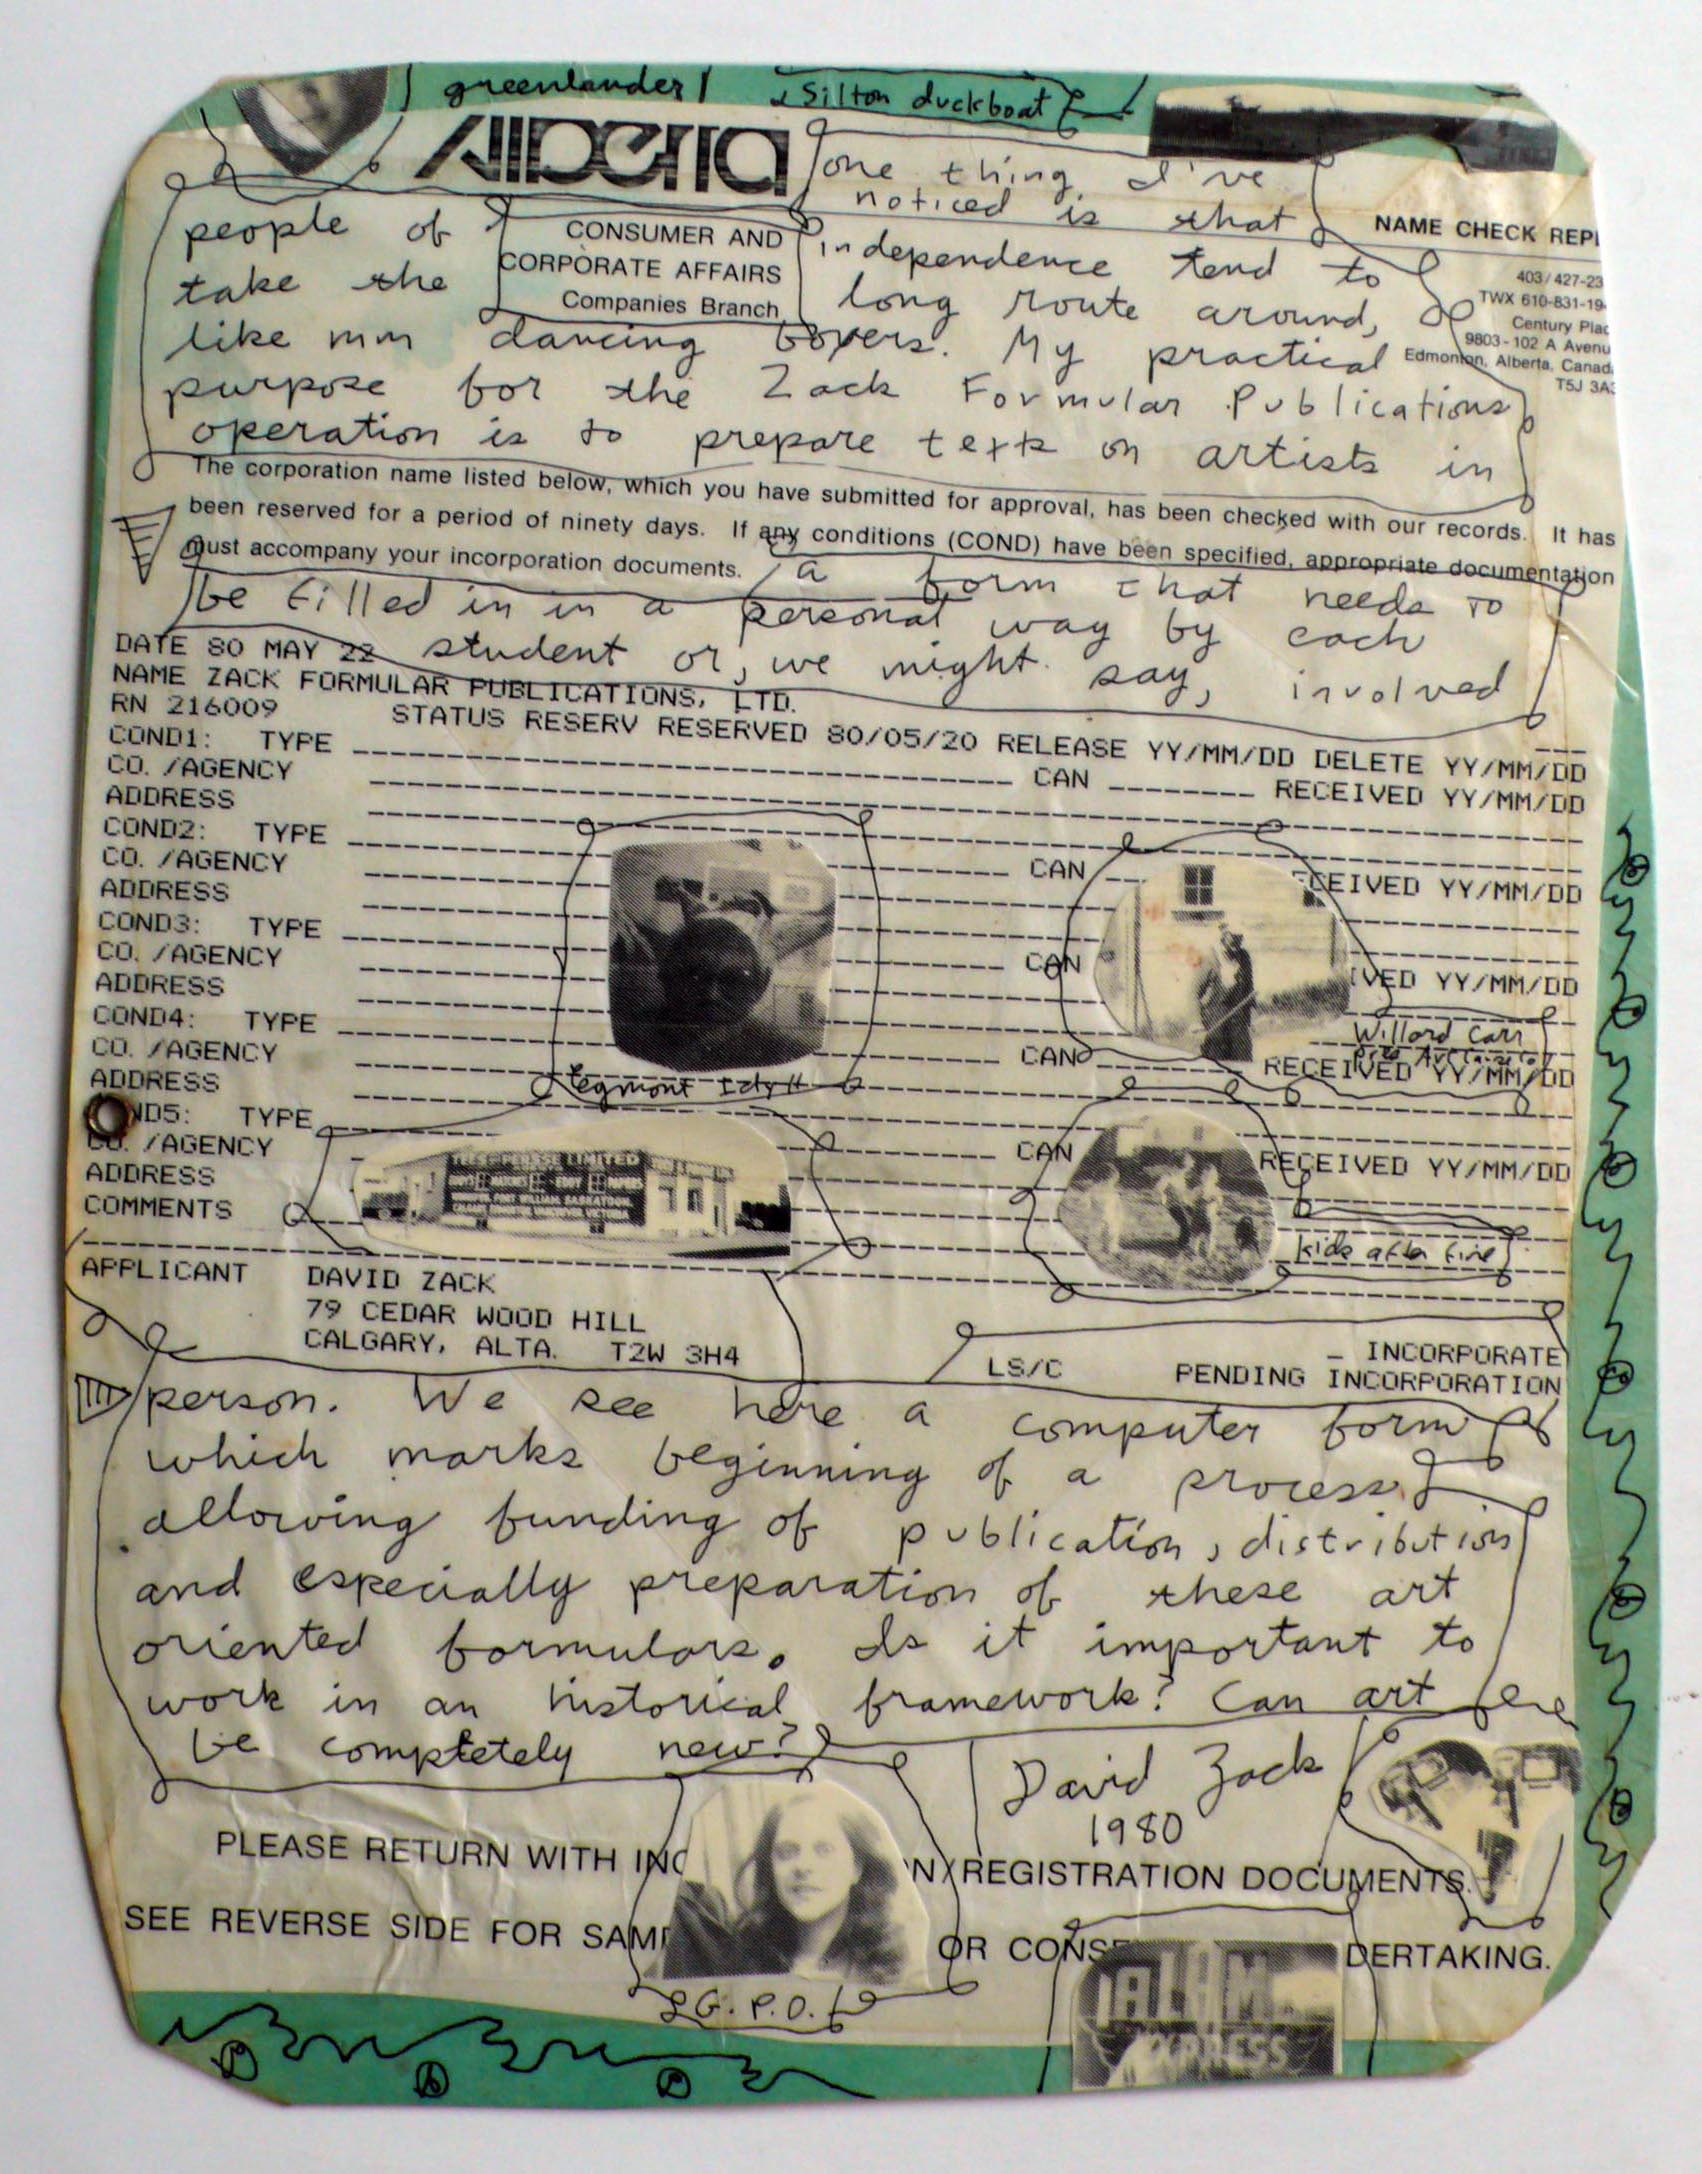 greenlander
Silton duckboat
Alberta
one thing I've
noticed is that
people of
independence tend to
take the
long route around,
like mm dancing boxers. My practical
purpose for the Zack Formular Publications
operation is to prepare texts on artists in
CONSUMER AND
CORPORATE AFFAIRS
Companies Branch
NAME CHECK REPL
403/427-23
TWX 610-831-19
Century Plac
9803-102 A Avenu
Edmonton, Alberta, Canad
T5J 3A
The corporation name listed below, which you have submitted for approval, has been checked with our records. It has
been reserved for a period of ninety days. If any conditions (COND) have been specified, appropriate documentation
must accompany your incorporation documents.
a form that needs to
be filled in in a personal way by each
student or, we might say, involved
DATE 80 MAY 22
NAME ZACK FORMULAR PUBLICATIONS, LTD.
RN 216009 STATUS RESERV RESERVED 80/05/20 RELEASE YY/MM/DD DELETE YY/MM/DD
COND1: TYPE CAN RECEIVED YY/MM/DD
CO. /AGENCY
ADDRESS
COND2: TYPE CAN ECEIVED YY/MM/DD
CO. /AGENCY
ADDRESS
COND3: TYPE CAN IVED YY/MM/DD
CO. /AGENCY
ADDRESS
Willard Carr
COND4: TYPE CAN RECEIVED YY/MM/DD
CO. /AGENCY
ADDRESS
Egmont
ND5: TYPE CAN RECEIVED YY/MM/DD
CO. /AGENCY
ADDRESS
COMMENTS
LIMITED
kids after fire
APPLICANT DAVID ZACK
79 CEDAR WOOD HILL
CALGARY, ALTA. T2W 3H4
_ INCORPORATE
LS/C PENDING INCORPORATION
person. We see here a computer form
which marks beginning of a process
allowing funding of publication, distribution
and especially preparation of these art
oriented formulars. Is it important to
work in an historical framework? Can art ever
be completely new?
David Zack
1980
PLEASE RETURN WITH INC N/REGISTRATION DOCUMENTS.
SEE REVERSE SIDE FOR SAM OR CONSE DERTAKING.
G.P.O.
EXPRESS